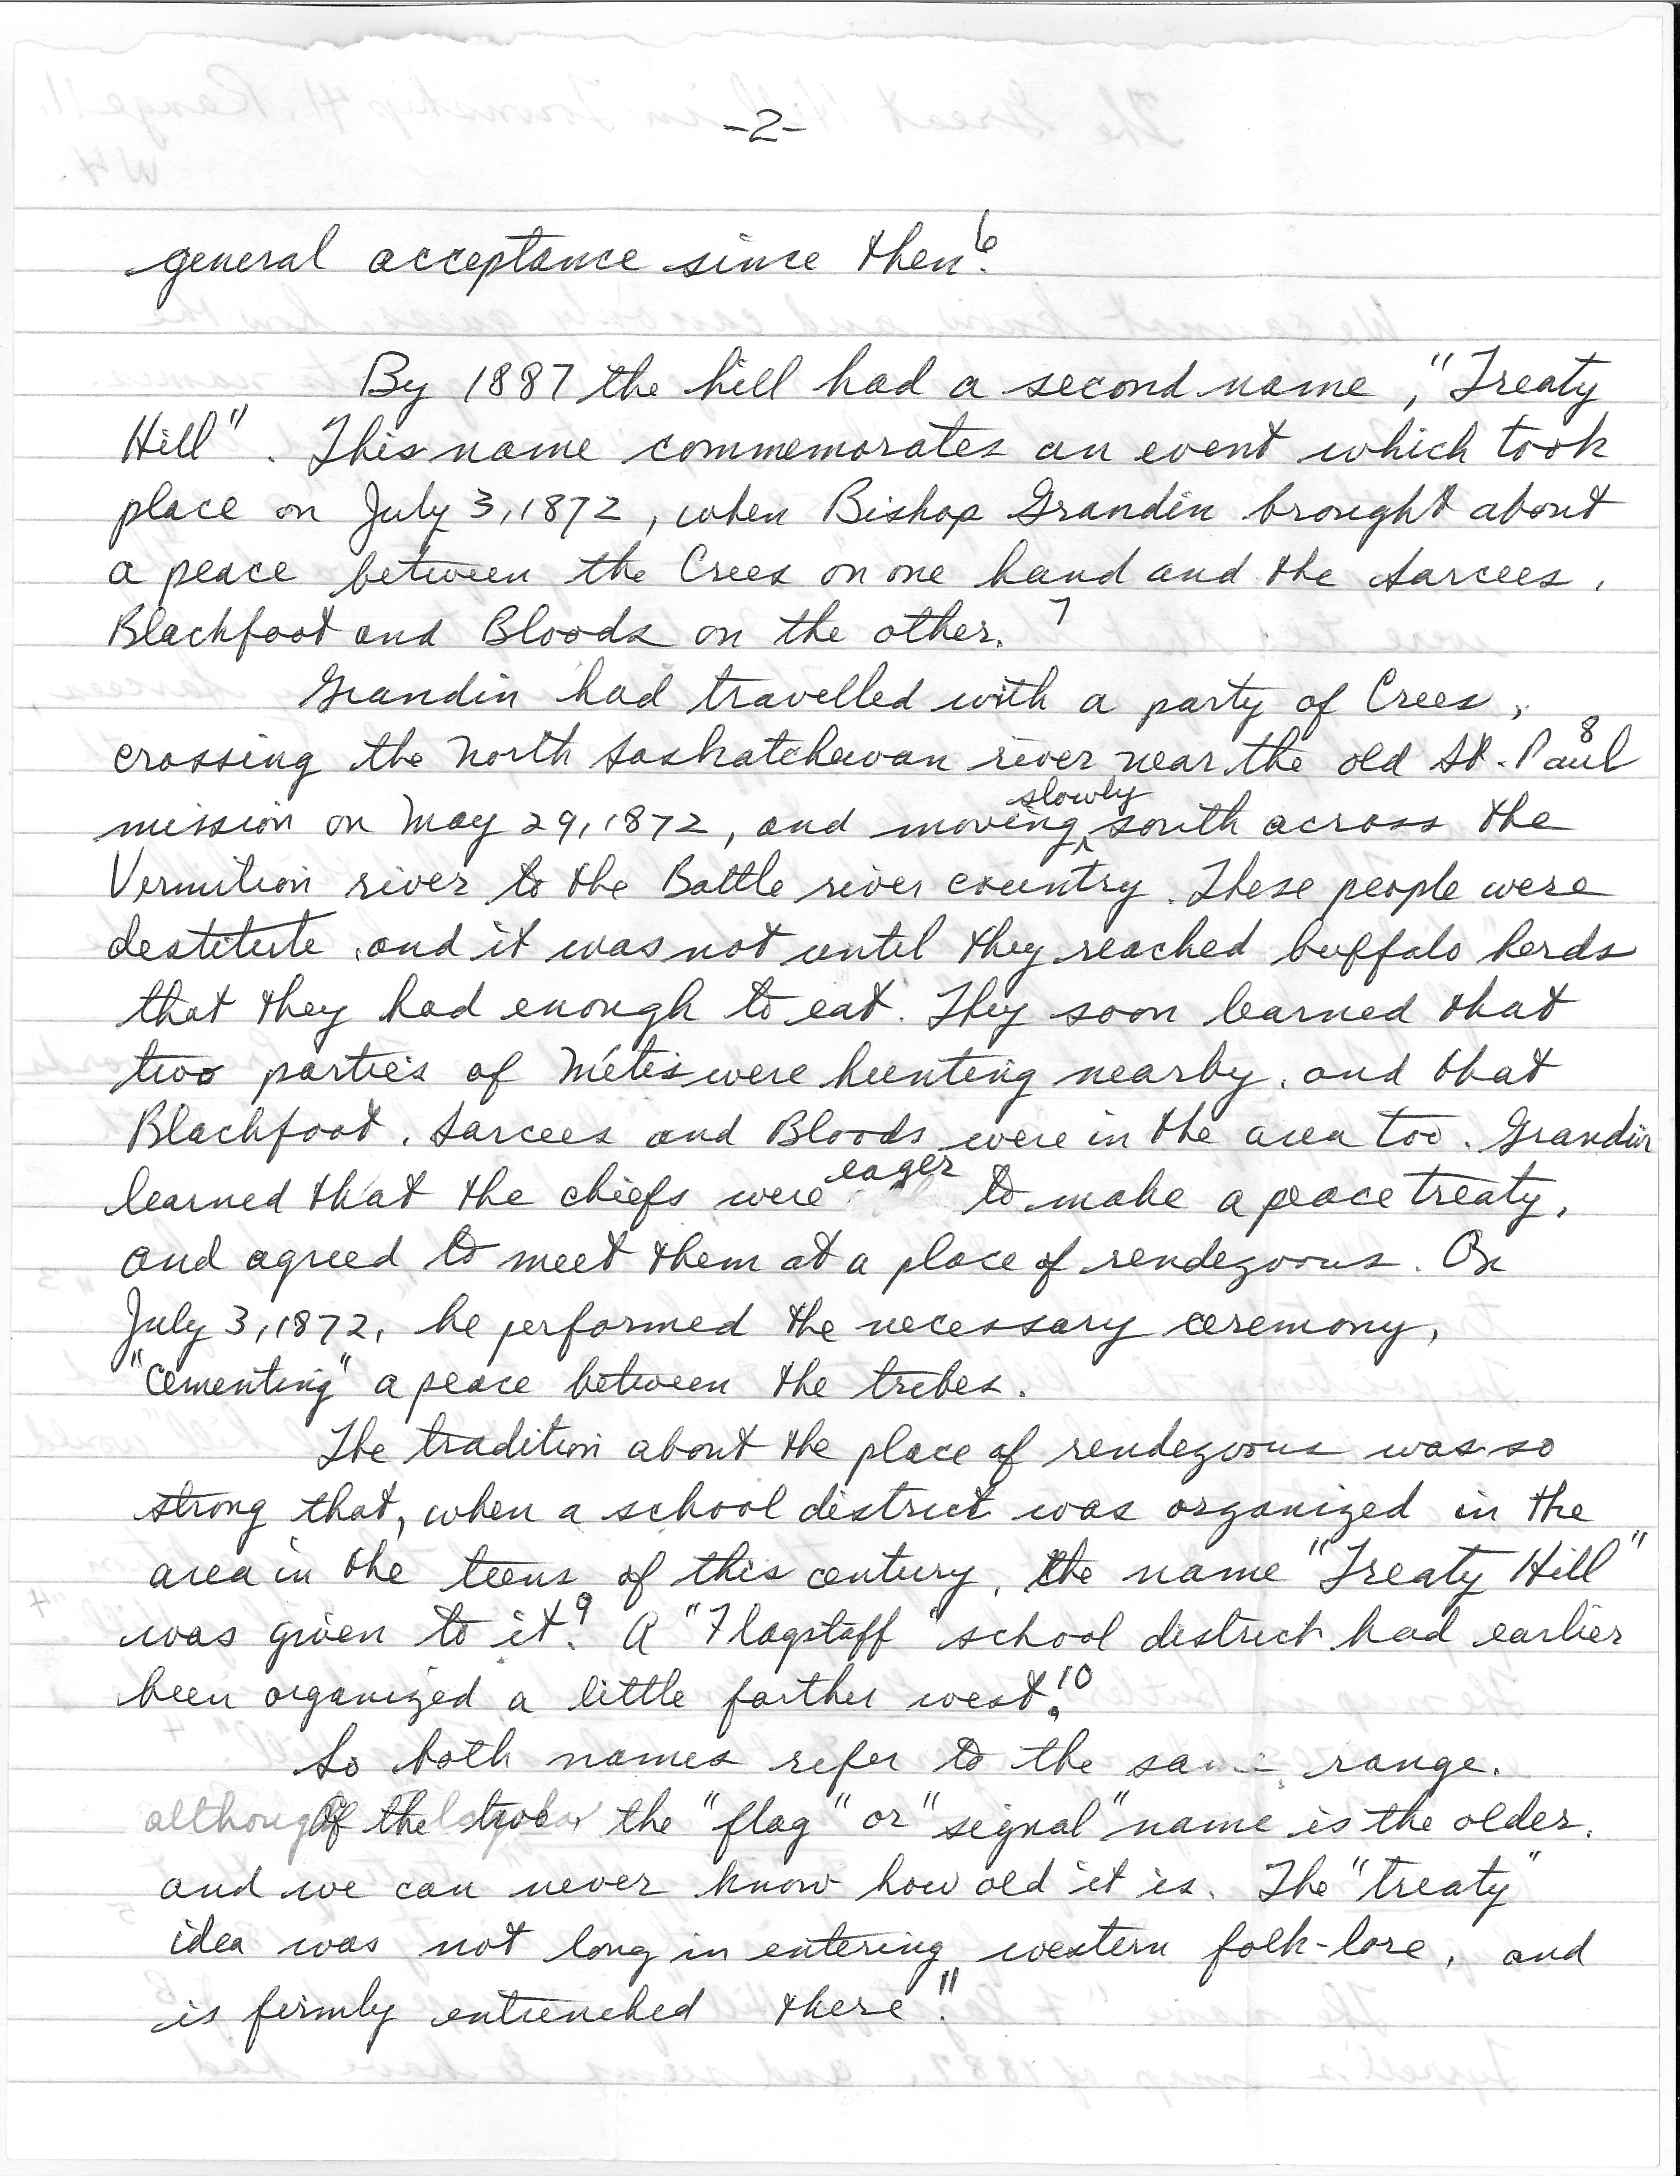 -2-
general acceptance since then.6
By 1887 the hill had a second name, "Treaty
Hill". This name commemorates an event which took
place on July 3, 1872, when Bishop Grandin brought about
a peace between the Crees on one hand and the Sarcees,
Blackfoot and Bloods on the other. 7
Grandin had travelled with a party of Crees,
crossing the North Saskatchewan river near the old St. Paul 8
mission on May 29, 1872, and moving slowly south across the
Vermilion river to the Battle river country. These people were
destitute, and it was not until they reached buffalo herds
that they had enough to eat. They soon learned that
two parties of Métis were hunting nearby, and that
Blackfoot, Sarcees and Bloods were in the area too. Grandin
learned that the chiefs were eager to make a peace treaty,
and agreed to meet them at a place of rendezvous. On
July 3, 1872, he performed the necessary ceremony,
"cementing" a peace between the tribes.
The tradition about the place of rendezvous was so
strong that, when a school district was organized in the
area in the teens of this century, the name "Treaty Hill"
was given to it.9 A "Flagstaff" school district had earlier
been organized a little farther west.10
So both names refer to the same range.
Of the two, the "flag" or "signal" name is the older,
and we can never know how old it is. The "treaty"
idea was not long in entering western folk-lore, and
is firmly entrenched there.11